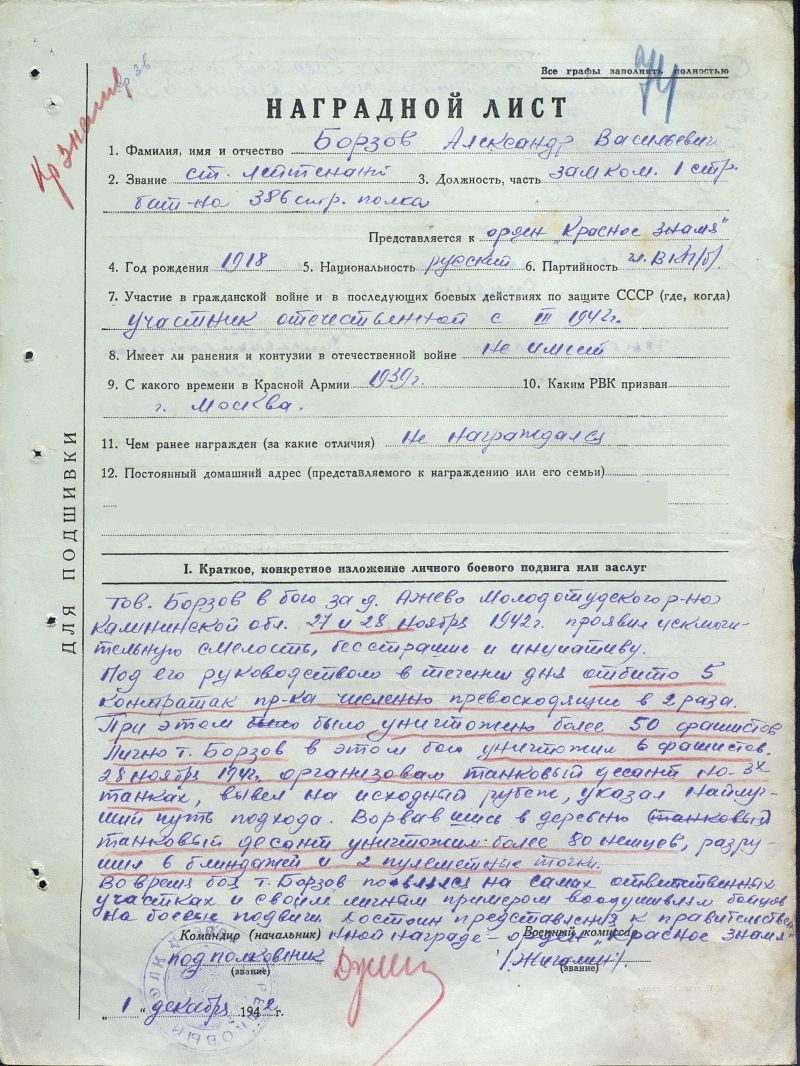 Все графы заполнять полностью
74
Кр знамя
НАГРАДНОЙ ЛИСТ
1. Фамилия, имя и отчество Борзов Александр Васильевич
2. Звание ст. лейтенант 3. Должность, часть зам ком. 1 стр.
бат-на 386 стр. полка
Представляется к орден „Красное знамя"
4. Год рождения 1918 5. Национальность русский 6. Партийность чл. ВКП/б/.
7. Участие в гражданской войне и в последующих боевых действиях по защите СССР (где, когда)
участник отечественной с III 1942г.
8. Имеет ли ранения и контузии в отечественной войне Не имеет
9. С какого времени в Красной Армии 1939г. 10. Каким РВК призван
г. Москва.
11. Чем ранее награжден (за какие отличия) Не награждался
12. Постоянный домашний адрес (представляемого к награждению или его семьи)
ДЛЯ ПОДШИВКИ
I. Краткое, конкретное изложение личного боевого подвига или заслуг
Тов. Борзов в бою за д. Ажево Молодотудского р-на
Калининской обл. 27 и 28 ноября 1942г. проявил исключи-
тельную смелость, бесстрашие и инициативу.
Под его руководством в течении дня отбито 5
контратак пр-ка численно превосходящие в 2 раза.
При этом было было уничтожено более 50 фашистов
Лично т. Борзов в этом бою уничтожил 6 фашистов.
28 ноября 1942г. организовал танковый десант на 3х
танках, вывел на исходный рубеж, указал наилуч-
ший путь подхода. Ворвавшись в деревню танковый
танковый десант уничтожил более 80 немцев, разру-
шил 6 блиндажей и 2 пулеметные точки.
Во время боя т. Борзов появлялся на самых ответственных
участках и своим личным примером воодушевлял бойцов
на боевые подвиги. Достоин представления к правительствен
ной награде - орден „Красное знамя"
Командир (начальник) Военный комиссар
подполковник /Жигалин/.
(звание) (звание)
„1" декабря 1942г.